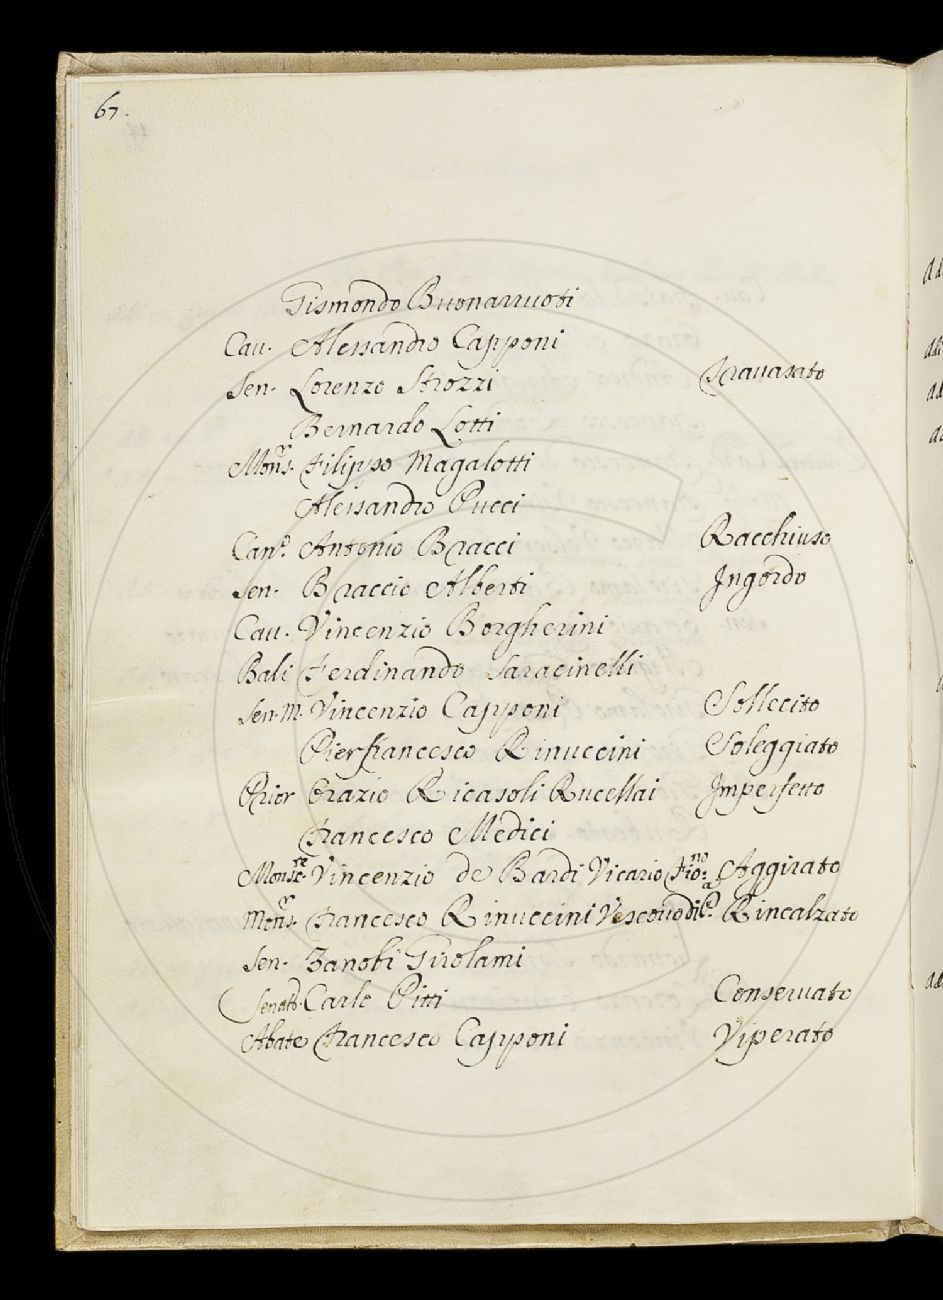 67.
Gismondo Buonarruoti
Cau. Alessandro Capponi
Sen. Lorenzo Strozzi Trauasato
Bernardo Lotti
Mons.r Filippo Magalotti
Alessandro Pucci
Can.o Antonio Bracci Racchiuso
Sen. Braccio Alberti Ingordo
Cau. Vincenzio Borgherini
Bali Ferdinando Saracinelli
Sen. M. Vincenzio Capponi Sollecito
Pierfrancesco Rinuccini Soleggiato
Prior Orazio Ricasoli Rucellai Imperfetto
Francesco Medici
Monsre. Vincenzio de Bardi Vicario Fio:no Aggirato
Mons.r Francesco Rinuccini Vescouo di P.a Rincalzato
Sen. Zanobi Girolami
Senat. Carlo Pitti Conseruato
Abate Francesco Capponi Viperato